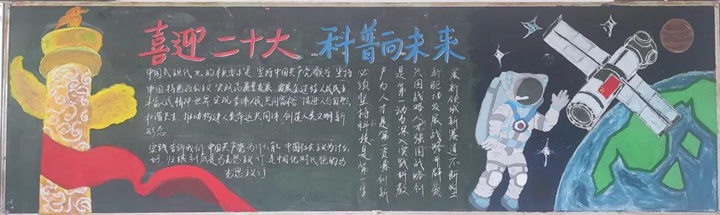 喜迎二十大 科普向未来
中国式现代化的本质要求是 坚持中国共产党领导 坚持
中国特色社会主义 实现高质量发展 发展全过程人民民主
丰富人民精神世界 实现全体人民共同富裕 促进人与自然
和谐共生 推动构建人类命运共同体 创造人类文明新
形态
实践告诉我们 中国共产党为什么能 中国社会主义为什么
好 归根到底是马克思主义行 是中国化时代化的马
克思主义行
必须坚持科技是第一生
产力人才是第一资源创新
是第一动力深入实施科教
兴国战略人才强国战略创
新驱动发展战略开辟发
展新领域新赛道不断塑